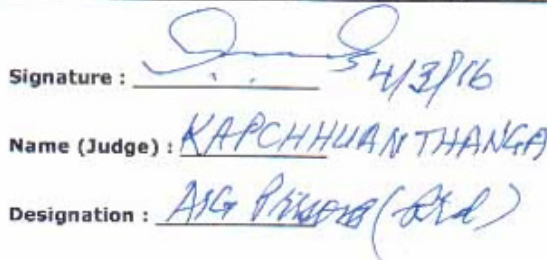 Signature : 4/3/16
Name (Judge) : KAPCHHUANTHANGA
Designation : AIG Prisons (Rtd)